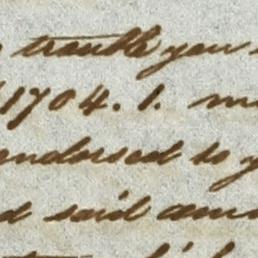 trouble you
1704. 1. m
endorsed to y
d said am